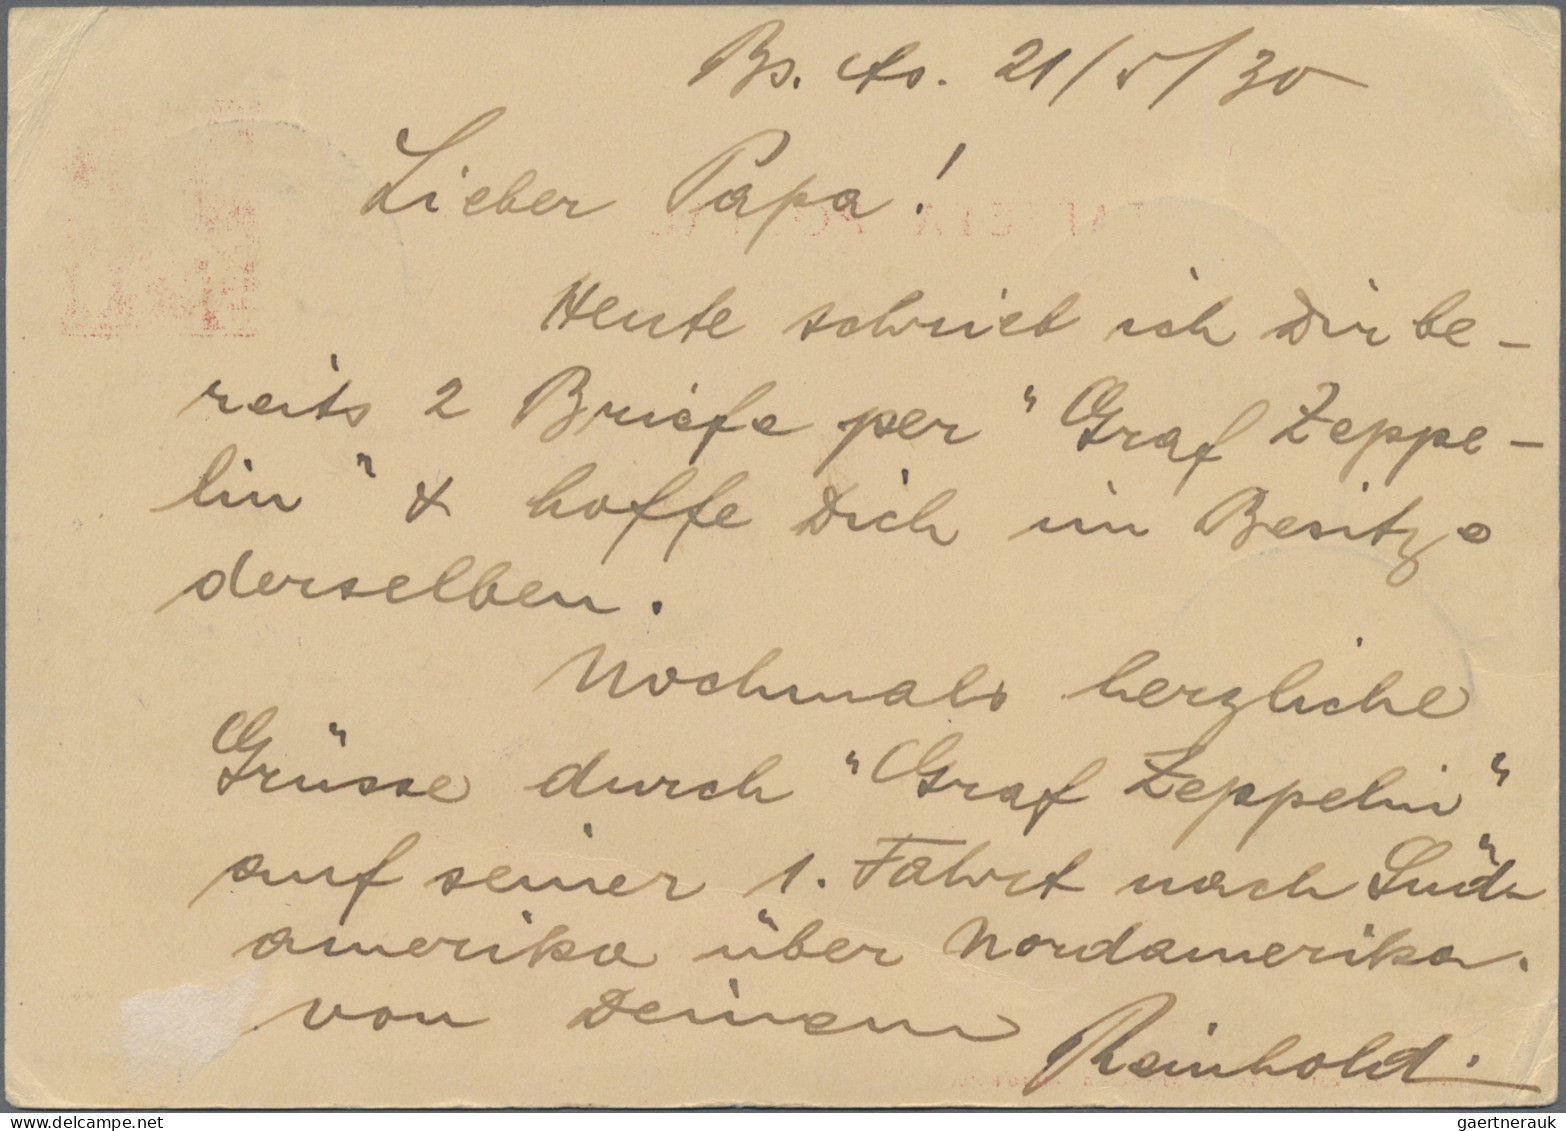 Bs. As. 21/5/30
Lieber Papa!
Heute schrieb ich Dir be-
reits 2 Briefe per "Graf Zeppe-
lin" & hoffe Dich im Besitze
derselben.
Nochmals herzliche
Grüsse durch "Graf Zeppelin"
auf seiner 1. Fahrt nach Süd-
amerika über Nordamerika.
von Deinem
Reinhold.
gaertnerauk / delcampe.net